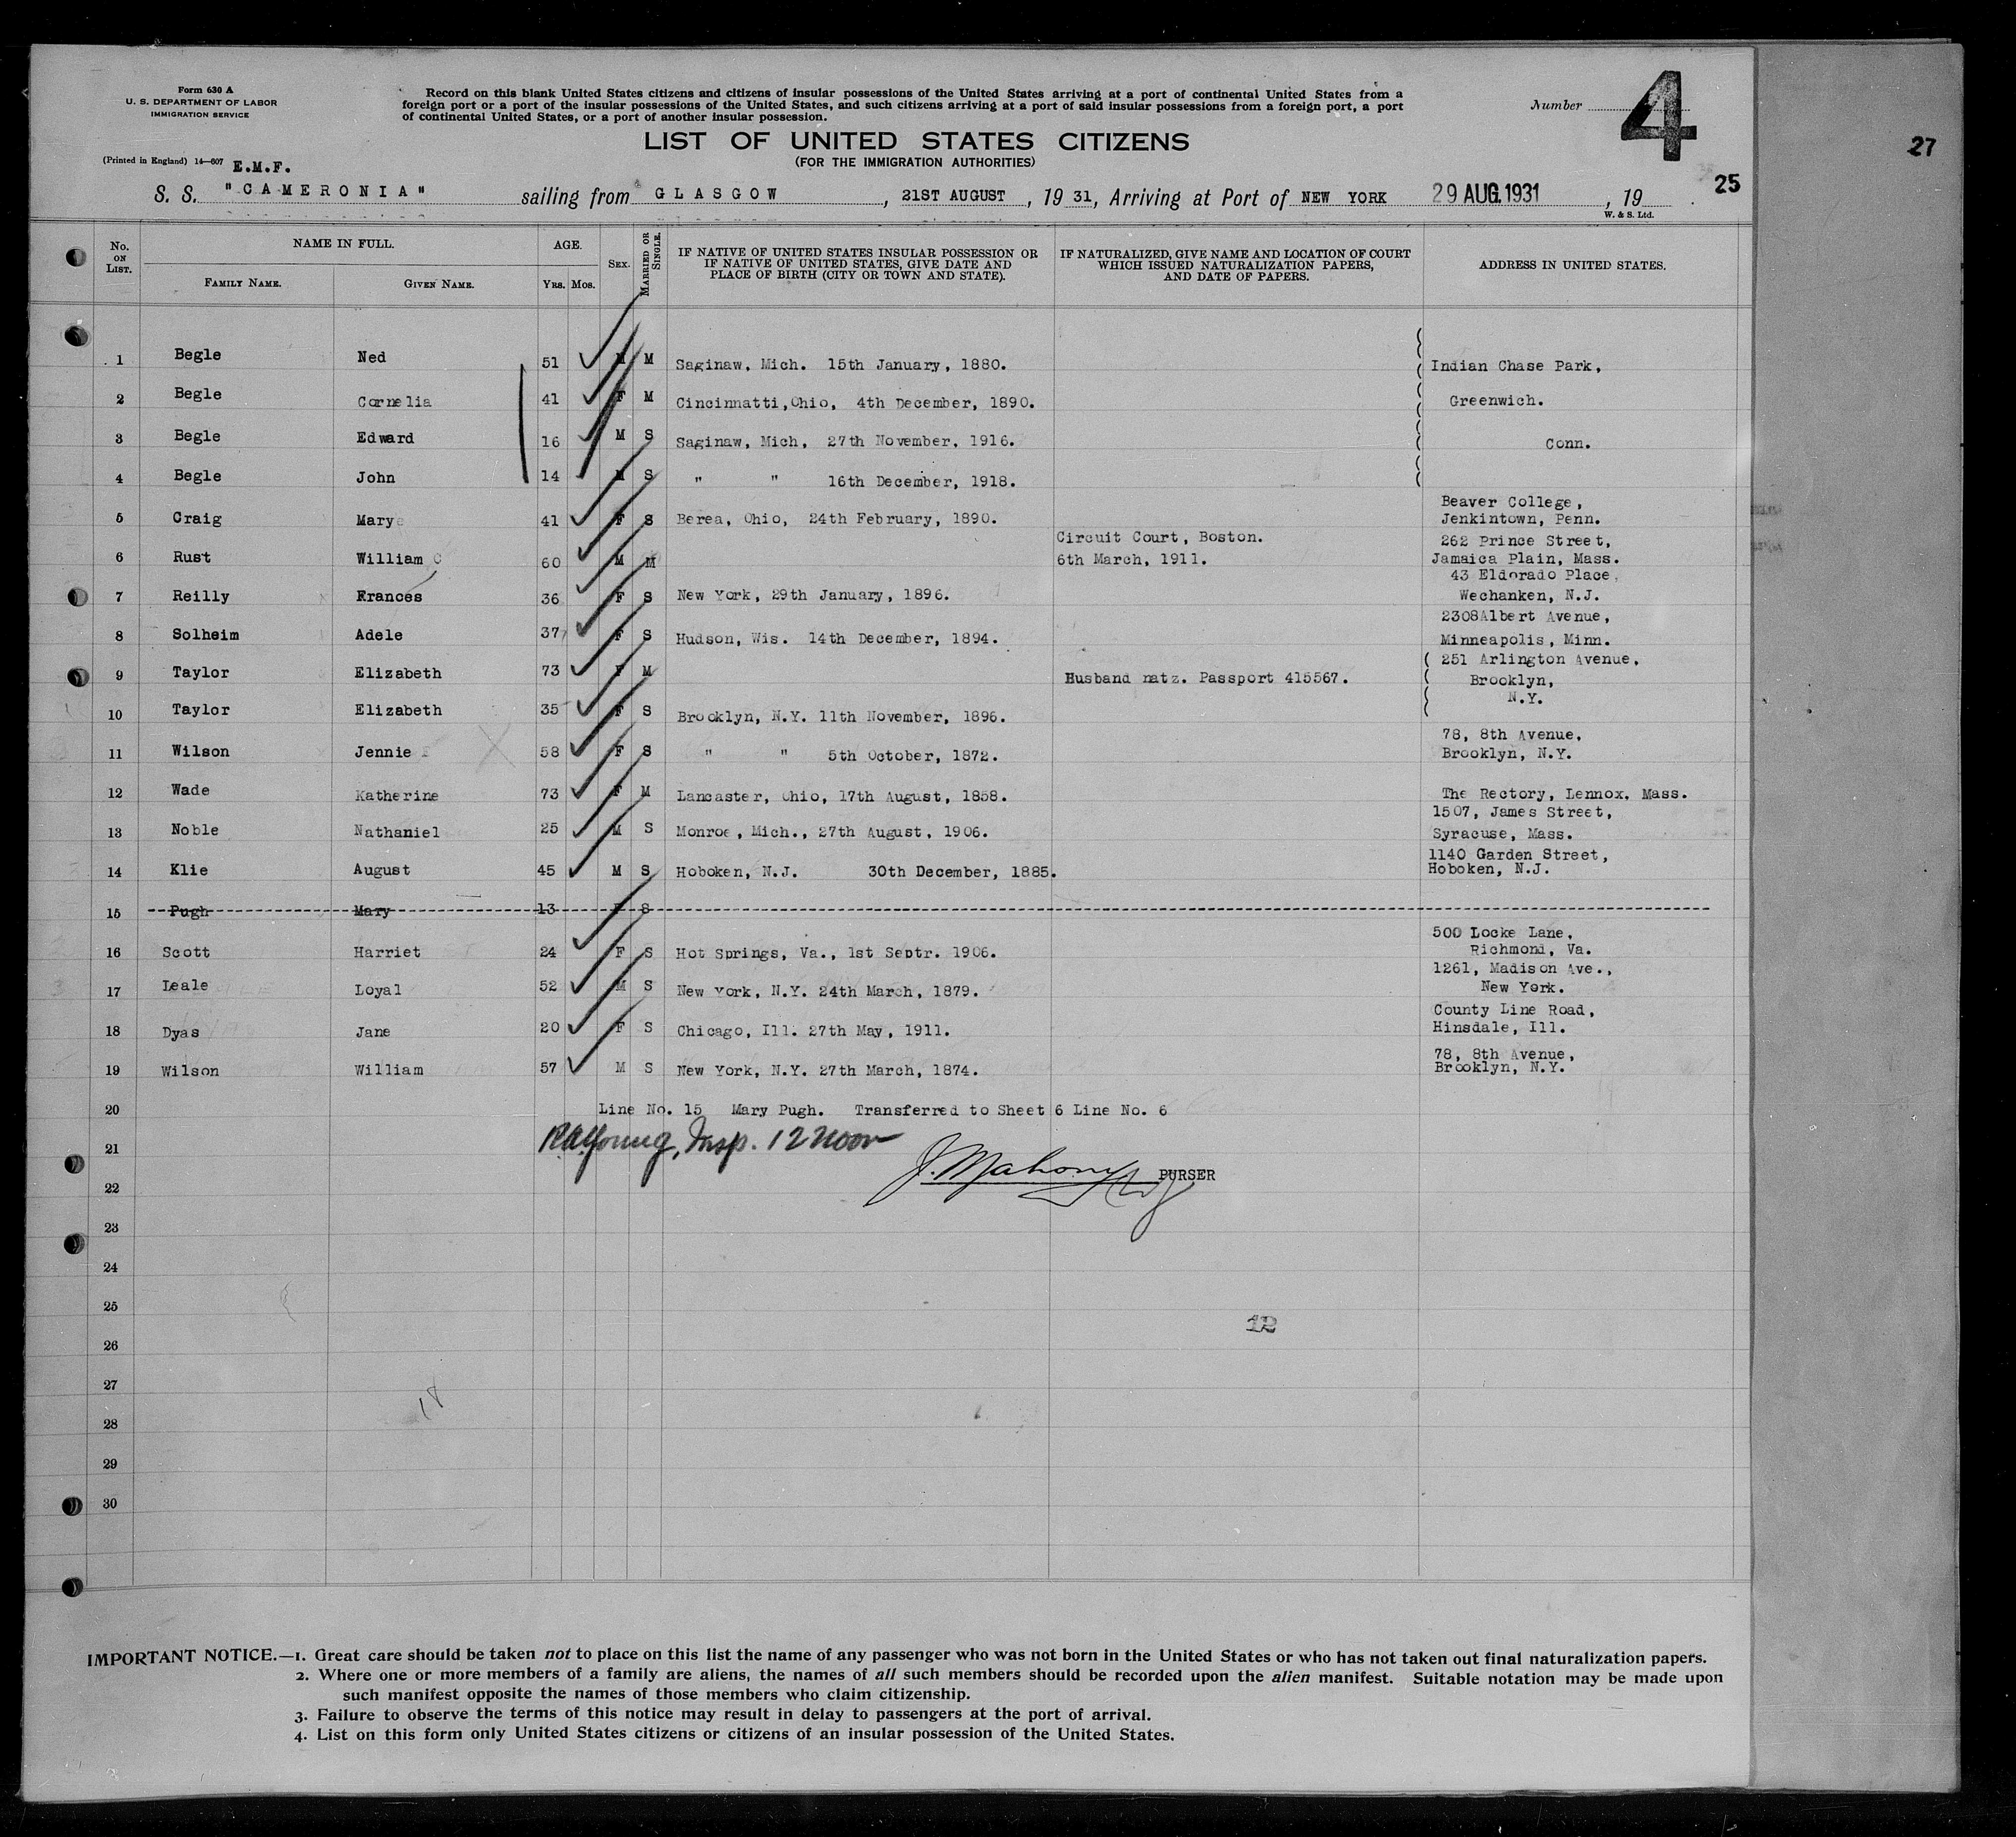 Form 630 A
U. S. DEPARTMENT OF LABOR
IMMIGRATION SERVICE
Record on this blank United States citizens and citizens of insular possessions of the United States arriving at a port of continental United States from a
foreign port or a port of the insular possessions of the United States, and such citizens arriving at a port of said insular possessions from a foreign port, a port
of continental United States, or a port of another insular possession.
Number 4
27
LIST OF UNITED STATES CITIZENS
(FOR THE IMMIGRATION AUTHORITIES)
(Printed in England) 14—607 E.M.F.
25
S. S. "CAMERONIA" sailing from GLASGOW, 21ST AUGUST, 19 31, Arriving at Port of NEW YORK 29 AUG. 1931, 19
W. & S. Ltd.
No. ON LIST. NAME IN FULL. FAMILY NAME. GIVEN NAME. AGE. YRS. MOS. SEX. MARRIED OR SINGLE. IF NATIVE OF UNITED STATES INSULAR POSSESSION OR IF NATIVE OF UNITED STATES, GIVE DATE AND PLACE OF BIRTH (CITY OR TOWN AND STATE). IF NATURALIZED, GIVE NAME AND LOCATION OF COURT WHICH ISSUED NATURALIZATION PAPERS, AND DATE OF PAPERS. ADDRESS IN UNITED STATES.
1 Begle Ned 51 M M Saginaw, Mich. 15th January, 1880. Indian Chase Park,
2 Begle Cornelia 41 F M Cincinnatti,Ohio, 4th December, 1890. Greenwich.
3 Begle Edward 16 M S Saginaw, Mich, 27th November, 1916. Conn.
4 Begle John 14 M S " " 16th December, 1918.
5 Craig Mary 41 F S Berea, Ohio, 24th February, 1890. Beaver College,
Jenkintown, Penn.
6 Rust William C 60 M M Circuit Court, Boston. 262 Prince Street,
6th March, 1911. Jamaica Plain, Mass.
7 Reilly Frances 36 F S New York, 29th January, 1896. 43 Eldorado Place,
Wechanken, N.J.
8 Solheim Adele 37 F S Hudson, Wis. 14th December, 1894. 2308Albert Avenue,
Minneapolis, Minn.
9 Taylor Elizabeth 73 F M Husband natz. Passport 415567. 251 Arlington Avenue,
Brooklyn,
N.Y.
10 Taylor Elizabeth 35 F S Brooklyn, N.Y. 11th November, 1896.
11 Wilson Jennie 58 F S " " 5th October, 1872. 78, 8th Avenue,
Brooklyn, N.Y.
12 Wade Katherine 73 F M Lancaster, Ohio, 17th August, 1858. The Rectory, Lennox, Mass.
13 Noble Nathaniel 25 M S Monroe, Mich., 27th August, 1906. 1507, James Street,
Syracuse, Mass.
14 Klie August 45 M S Hoboken, N.J. 30th December, 1885. 1140 Garden Street,
Hoboken, N.J.
15 Pugh Mary 13 F S
16 Scott Harriet 24 F S Hot Springs, Va., 1st Septr. 1906. 500 Locke Lane,
Richmond, Va.
17 Leale Loyal 52 M S New York, N.Y. 24th March, 1879. 1261, Madison Ave.,
New York.
18 Dyas Jane 20 F S Chicago, Ill. 27th May, 1911. County Line Road,
Hinsdale, Ill.
19 Wilson William 57 M S New York, N.Y. 27th March, 1874. 78, 8th Avenue,
Brooklyn, N.Y.
20 Line No. 15 Mary Pugh. Transferred to Sheet 6 Line No. 6
21 RA Young, Insp. 12 Noon
J. Mahony PURSER
22
23
24
25
12
26
27
18
28
29
30
IMPORTANT NOTICE.—1. Great care should be taken not to place on this list the name of any passenger who was not born in the United States or who has not taken out final naturalization papers.
2. Where one or more members of a family are aliens, the names of all such members should be recorded upon the alien manifest. Suitable notation may be made upon
such manifest opposite the names of those members who claim citizenship.
3. Failure to observe the terms of this notice may result in delay to passengers at the port of arrival.
4. List on this form only United States citizens or citizens of an insular possession of the United States.